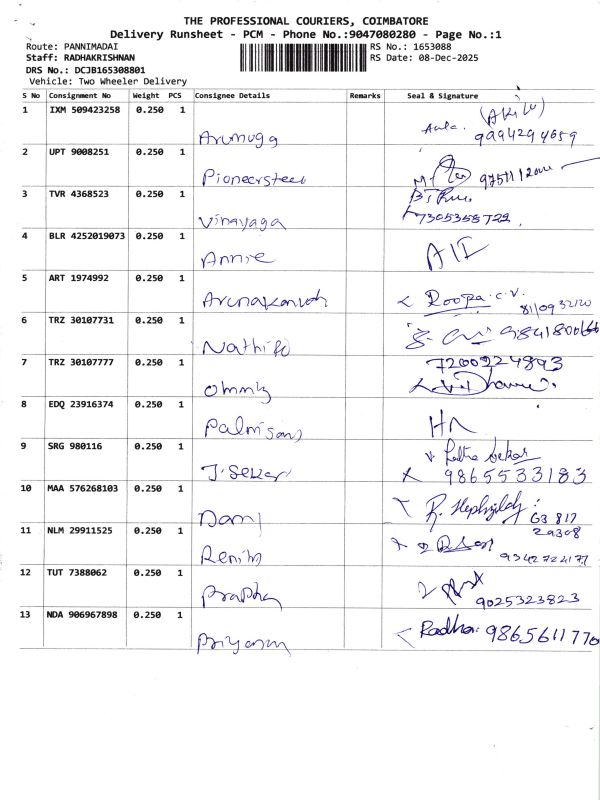 THE PROFESSIONAL COURIERS, COIMBATORE
Delivery Runsheet - PCM - Phone No.:9047080280 - Page No.:1
Route: PANNIMADAI
RS No.: 1653088
Staff: RADHAKRISHNAN
RS Date: 08-Dec-2025
DRS No.: DCJB165308801
Vehicle: Two Wheeler Delivery
S No Consignment No Weight PCS Consignee Details Remarks Seal & Signature
1 IXM 509423258 0.250 1 Arumugg
9994294659
2 UPT 9008251 0.250 1 Pioneersteel
3 TVR 4368523 0.250 1 Vinayaga
7305355722
4 BLR 4252019073 0.250 1 Annie
5 ART 1974992 0.250 1
Roopa. C.V.
6 TRZ 30107731 0.250 1
7 TRZ 30107777 0.250 1
7200224893
8 EDQ 23916374 0.250 1
HN
9 SRG 980116 0.250 1 J. Sekar
9865533183
10 MAA 576268103 0.250 1
11 NLM 29911525 0.250 1
12 TUT 7388062 0.250 1
9025323823
13 NDA 906967898 0.250 1
Radha: 986561177